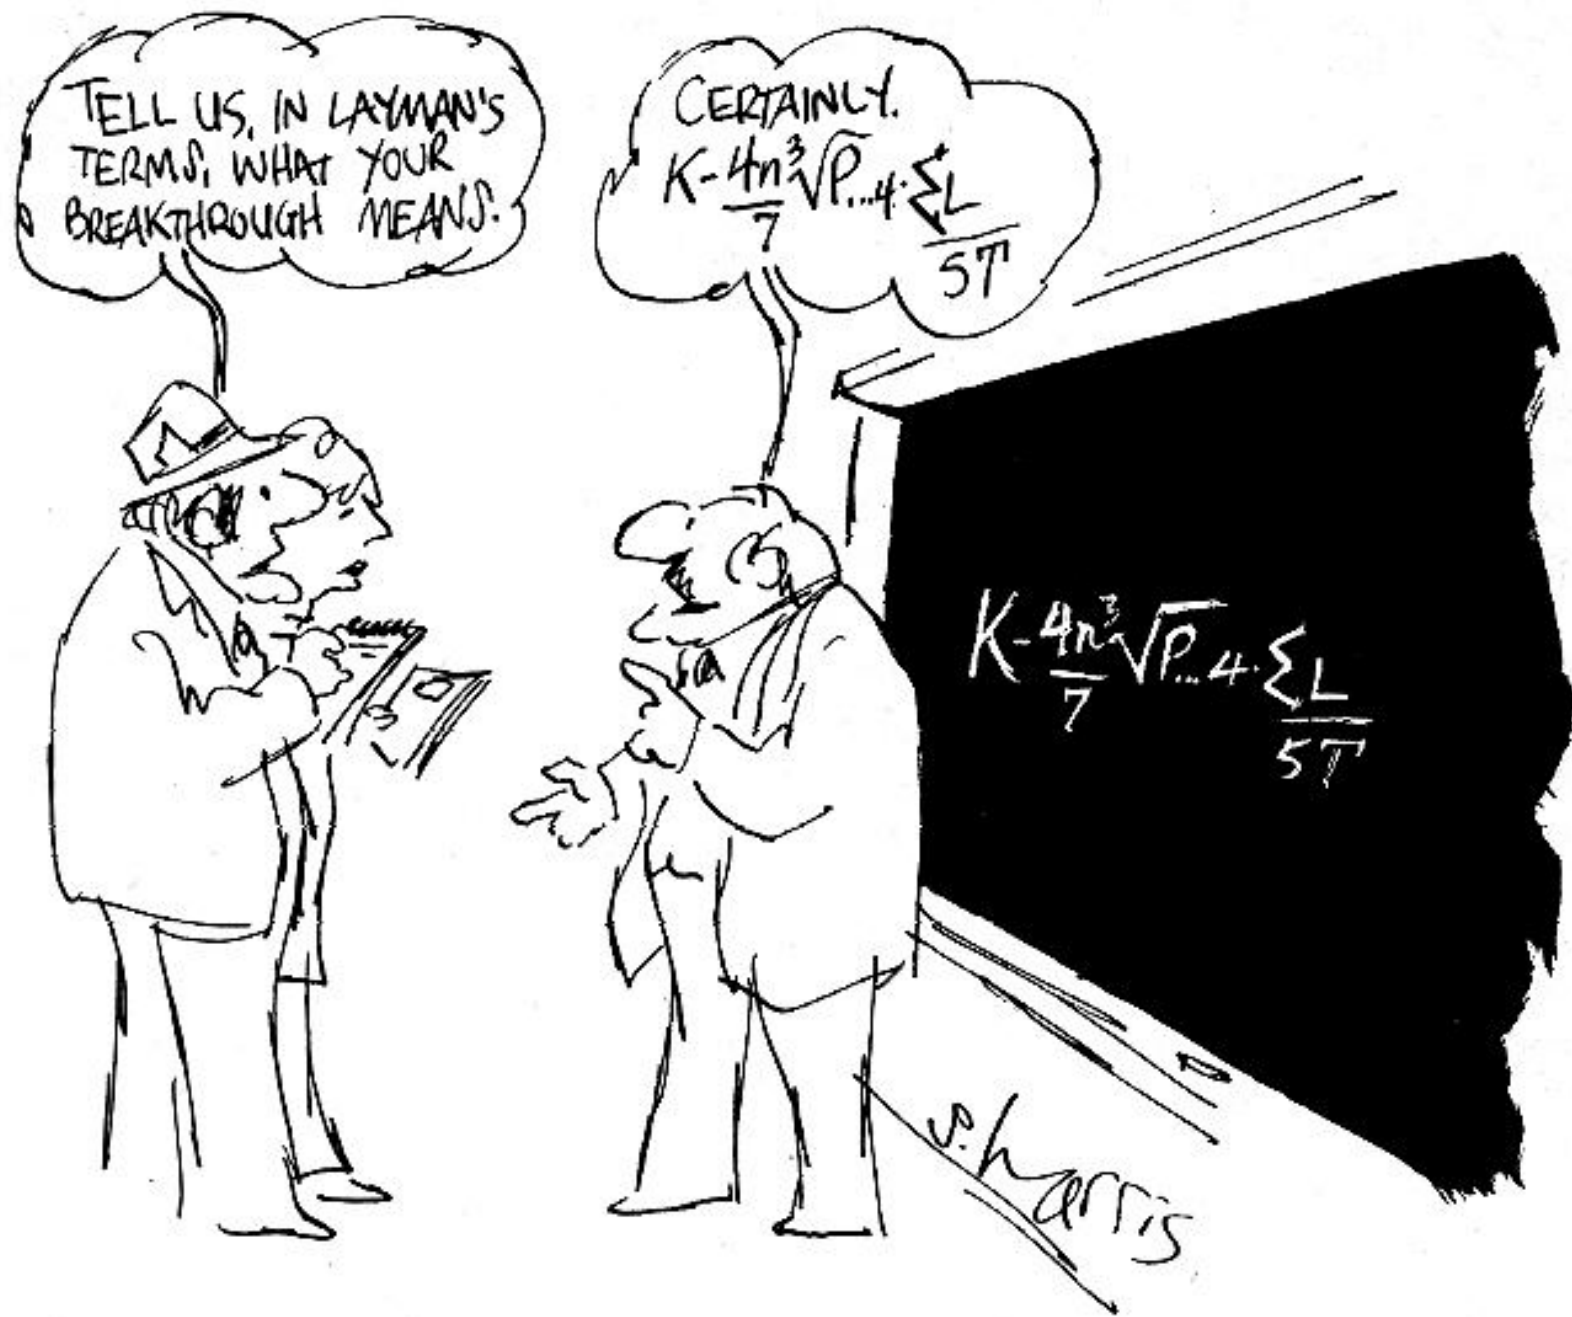 TELL US, IN LAYMAN'S
TERMS, WHAT YOUR
BREAKTHROUGH MEANS.
CERTAINLY.
K-4n/7 ³√P...4·ΣL/5T
K-4n/7 ³√P...4·ΣL/5T
s.harris